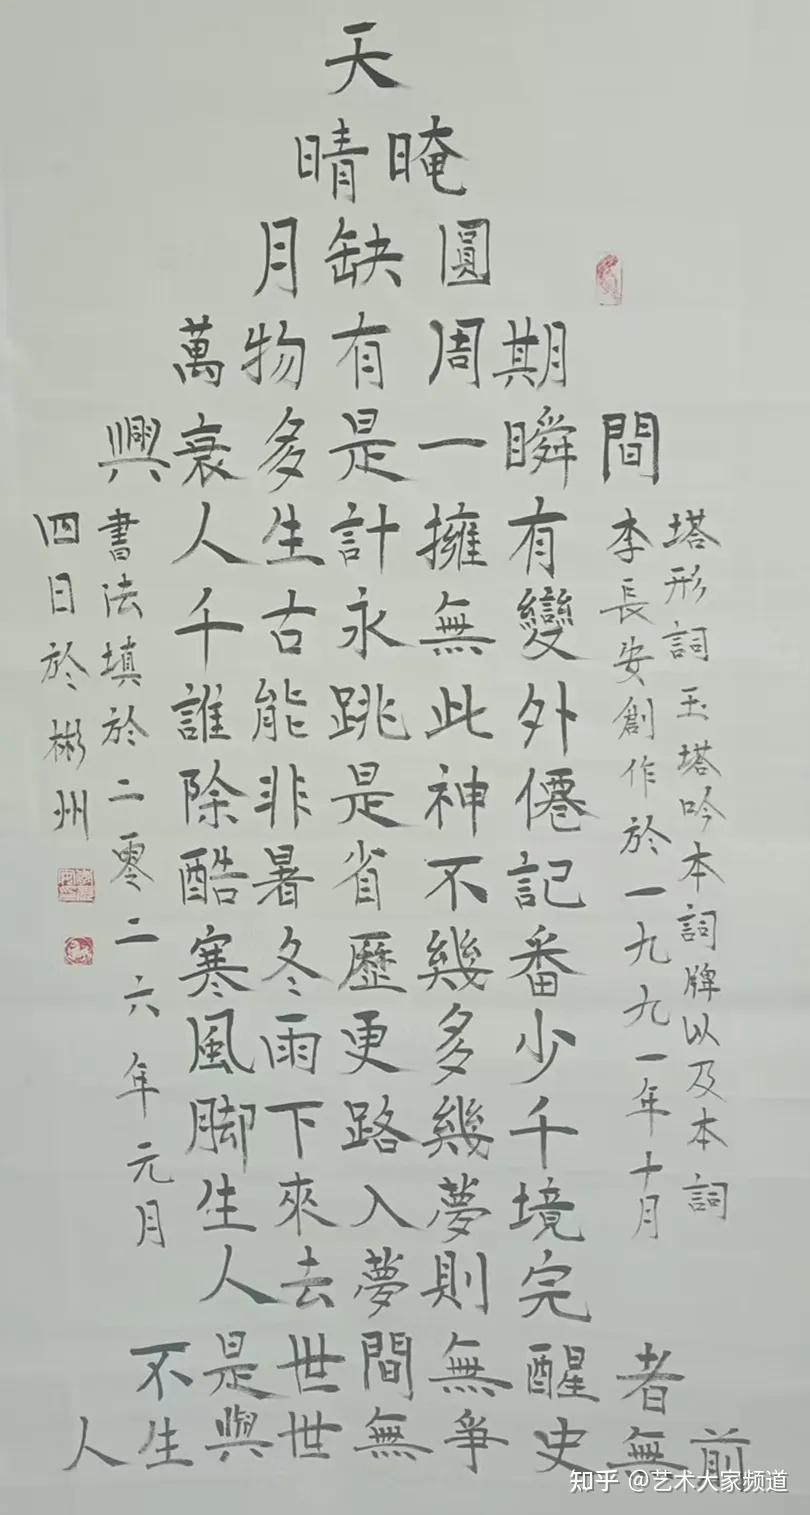 天
晴晻
月缺圓
萬物有周期
興衰多是一瞬間
人生計擁有
千古永無變
誰能跳此外
除非是神僊
酷暑省不記
寒冬歷幾番
風雨更多少
脚下路幾千
生來入夢境
人去夢則完
不是世間無醒者
人生與世無爭史無前
塔形詞玉塔吟本詞牌以及本詞
李長安創作於一九九一年十月
書法填於二零二六年元月
四日於彬州
知乎 @艺术大家频道